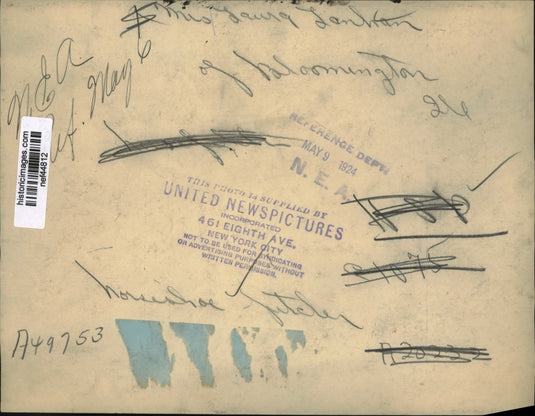 Mrs Laura Lanham
of Bloomington
Ill
N.E.A
Ref. May 6
historicimages.com
nef44812
REFERENCE DEP'T
MAY 9 1924
N. E. A.
THIS PHOTO IS SUPPLIED BY
UNITED NEWSPICTURES
INCORPORATED
461 EIGHTH AVE.
NEW YORK CITY
NOT TO BE USED FOR SYNDICATING
OR ADVERTISING PURPOSES WITHOUT
WRITTEN PERMISSION.
horseshoe pitcher
A49753